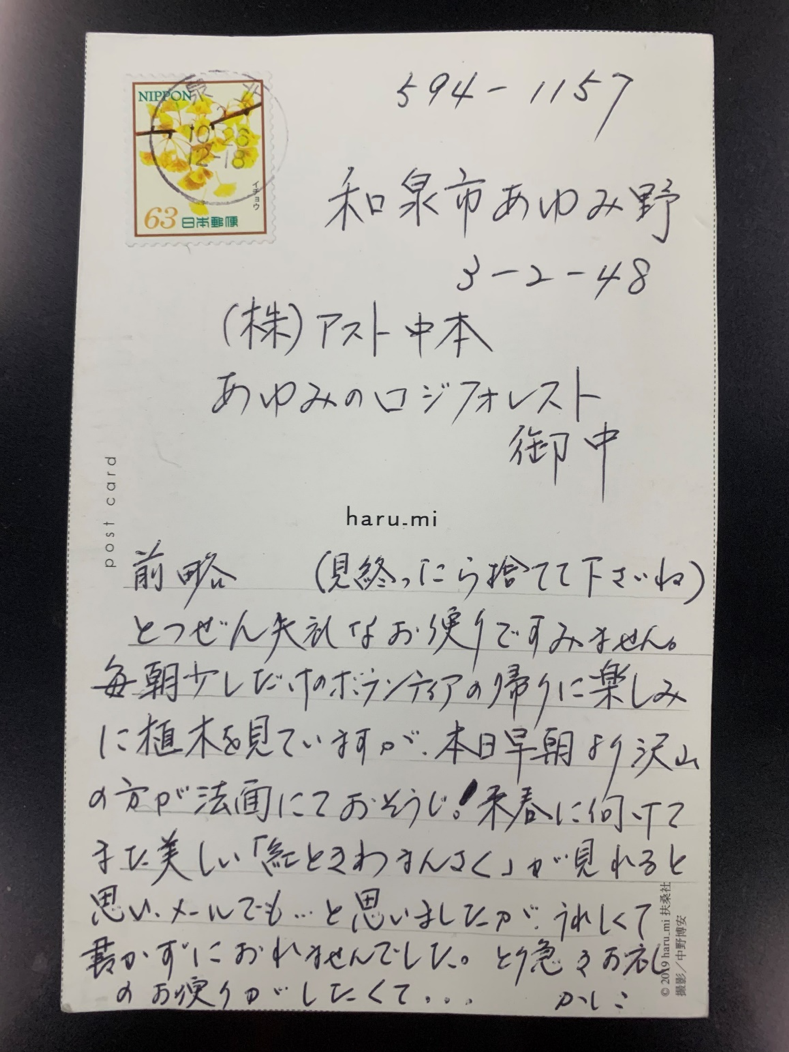 NIPPON
10.26
12-18
イチョウ
63 日本郵便
594-1157
和泉市あゆみ野
3-2-48
(株)アスト中本
あゆみのロジフォレスト
御中
post card
haru_mi
前略 (見終ったら捨てて下さいね)
とつぜん失礼なお便りですみません。
毎朝少しだけのボランティアの帰りに楽しみ
に植木を見ていますが、本日早朝より沢山
の方が法面にておそうじ!来春に向けて
また美しい「紅ときわまんさく」が見れると
思い、メールでも…と思いましたが、うれしくて
書かずにおれませんでした。とり急ぎお礼
のお便りがしたくて... かしこ
© 2019 haru_mi 扶桑社
撮影/中野博安